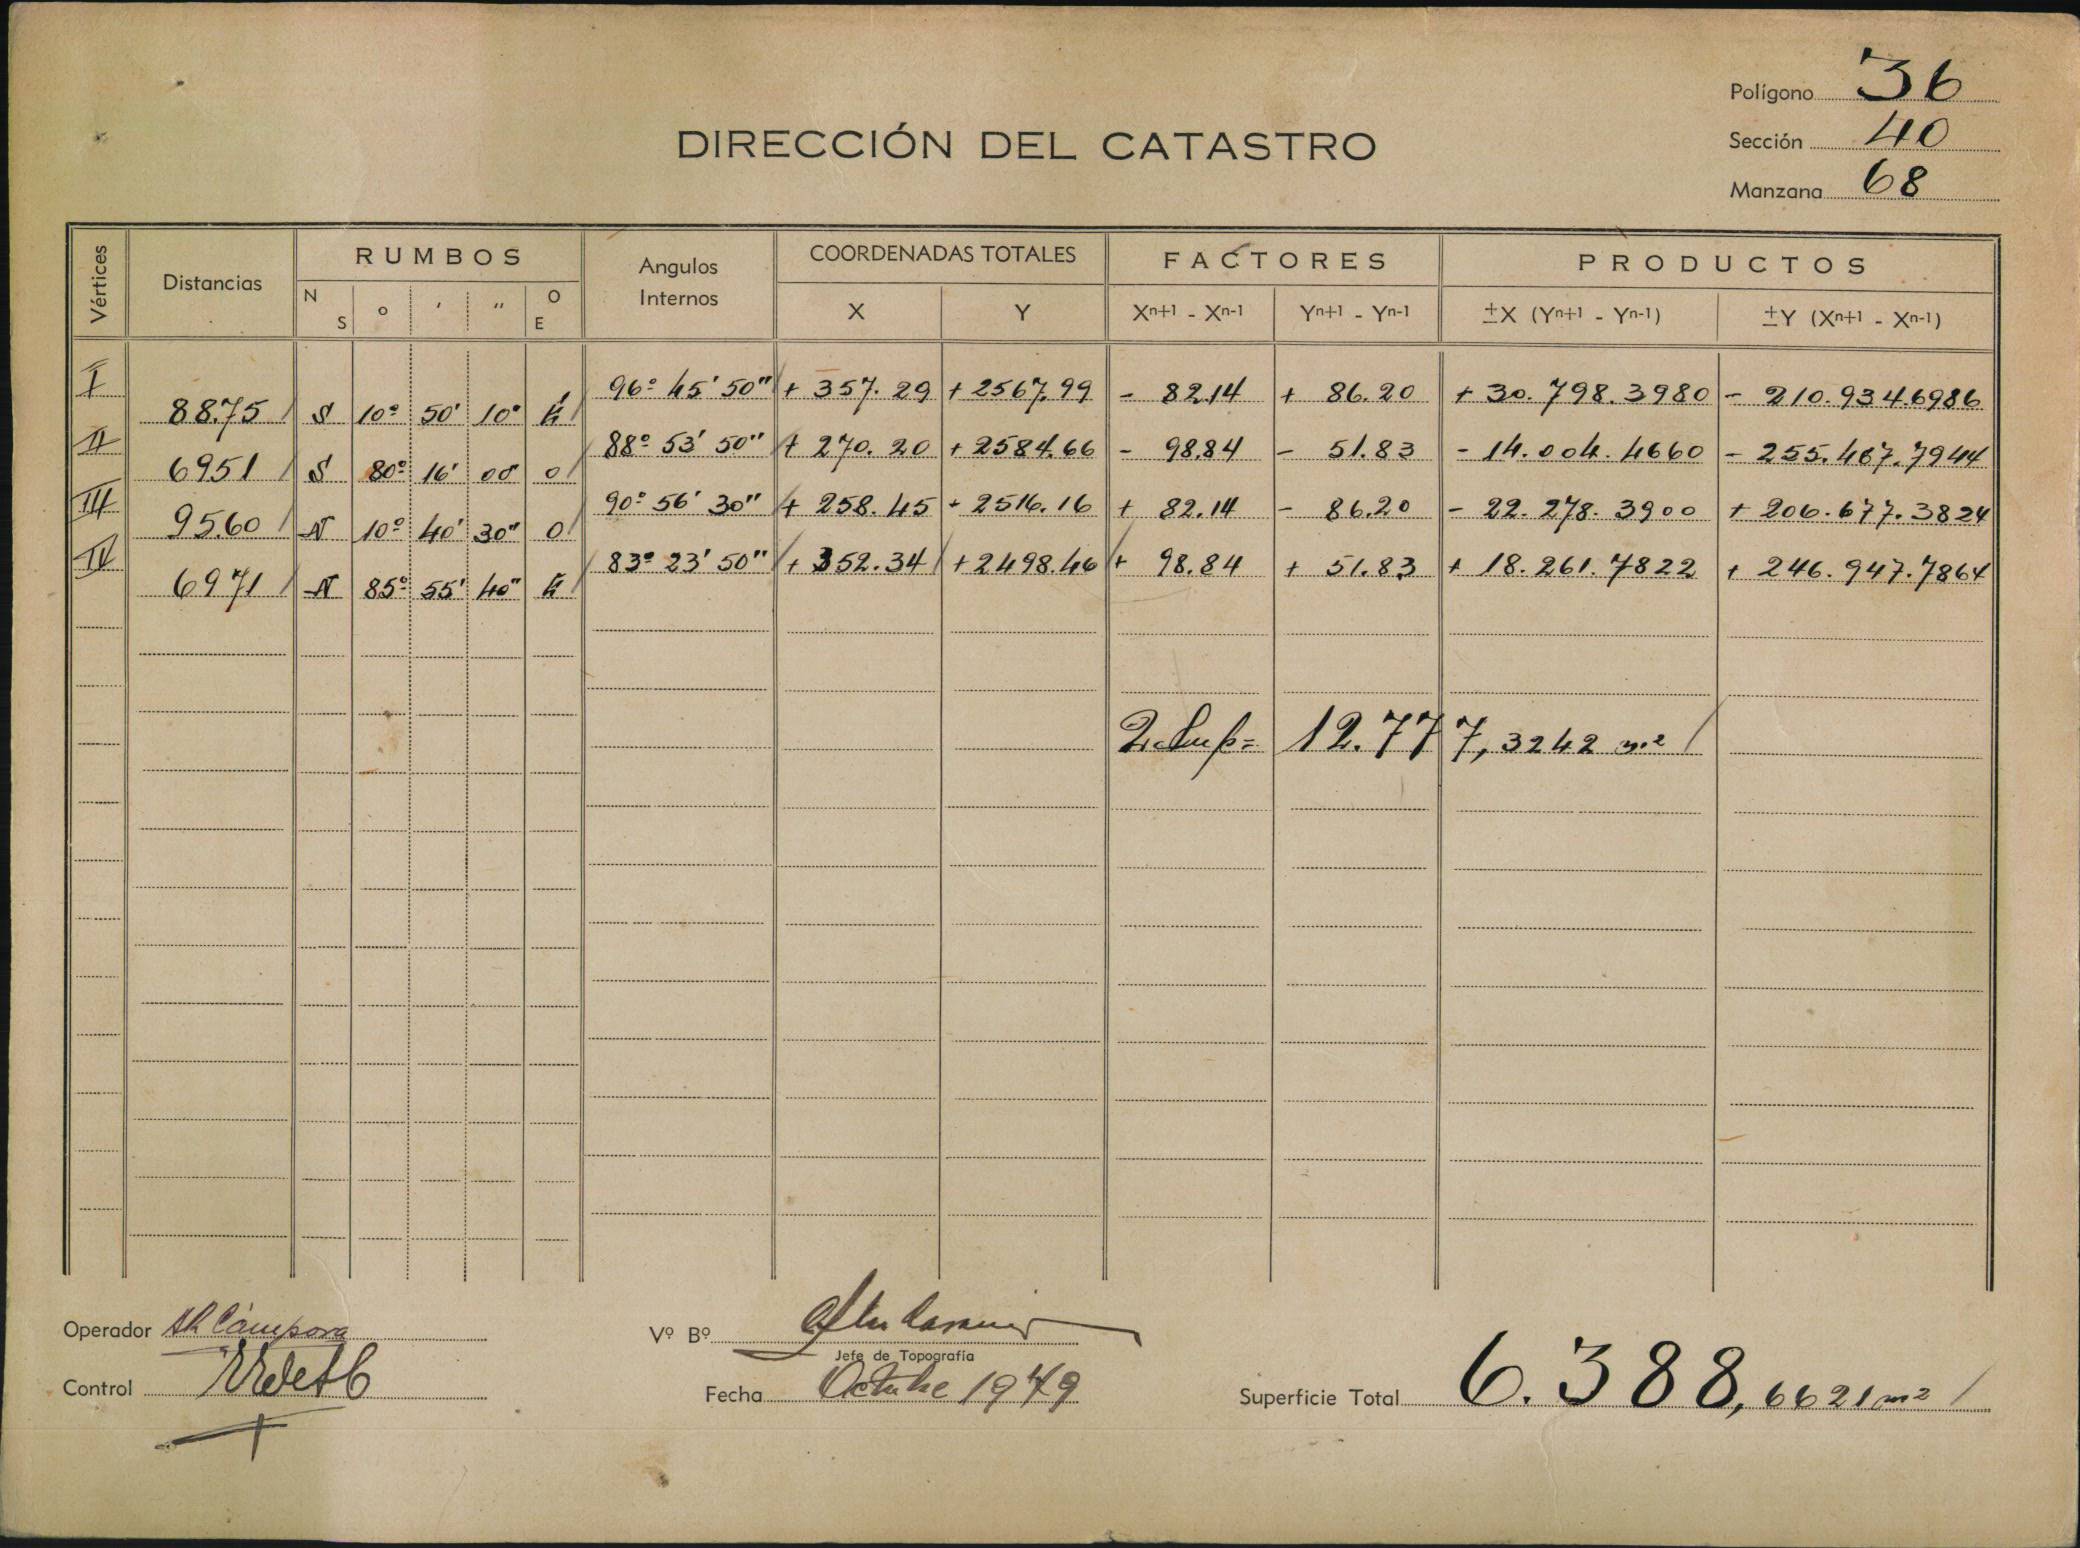 Polígono 36
DIRECCIÓN DEL CATASTRO
Sección 40
Manzana 68
Vértices Distancias RUMBOS Angulos Internos COORDENADAS TOTALES FACTORES PRODUCTOS
N S ° ′ ″ O E X Y Xn+1 - Xn-1 Yn+1 - Yn-1 ±X (Yn+1 - Yn-1) ±Y (Xn+1 - Xn-1)
I 96º 45' 50" + 357.29 + 2567.99 - 82.14 + 86.20 + 30.798.3980 - 210.934.6986
88.75 S 10º 50' 10" E
II 88º 53' 50" + 270.20 + 2584.66 - 98.84 - 51.83 - 14.004.4660 - 255.467.7944
69.51 S 80º 16' 00" O
III 90º 56' 30" + 258.45 + 2516.16 + 82.14 - 86.20 - 22.278.3900 + 206.677.3824
95.60 N 10º 40' 30" O
IV 83º 23' 50" + 352.34 + 2498.46 + 98.84 + 51.83 + 18.261.7822 + 246.947.7864
69.71 N 85º 55' 40" E
2.Sup= 12.777,3242 m²
Operador Cámpora Vº Bº
Jefe de Topografía
Control Fecha Octubre 1949 Superficie Total 6.388,6621 m²